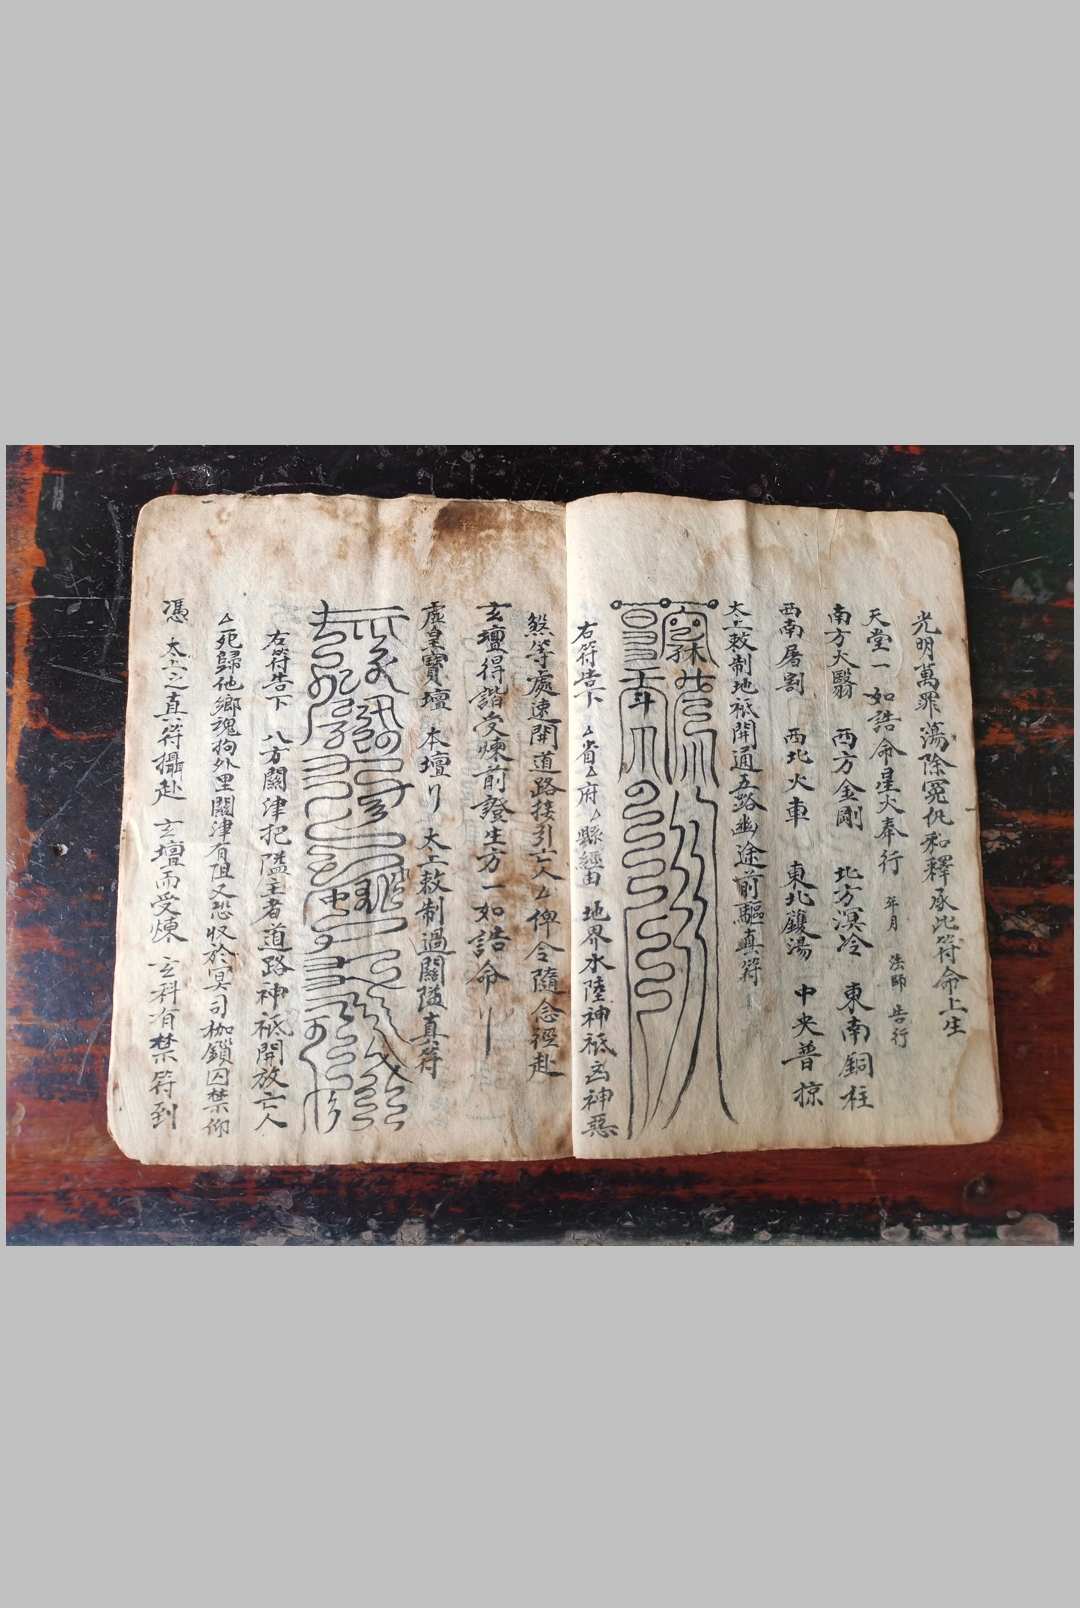 光明萬罪蕩除冤仇和釋承此符命上生
天堂一如誥命星火奉行 年月 法師 告行
南方大翳 西方金剛 北方溟冷 東南銅柱
西南屠割 西北火車 東北鑊湯 中央普掠
太上敕制地祇開通五路幽途前驅真符
右符告下 厶省厶府厶縣經由 地界水陸神祇 神惡
煞等處速開道路接引亡人厶俾令隨念徑赴
玄壇得諧受煉前證生方一如誥命
虛皇寶壇 本壇 太上敕制過關隘真符
右符告下 八方關津把隘主者道路神祇開放亡人
厶死歸他鄉魂拘外里關津有阻又恐收於冥司枷鎖囚禁仰
憑 太上之真符攝赴 玄壇而受煉 玄科有禁符到